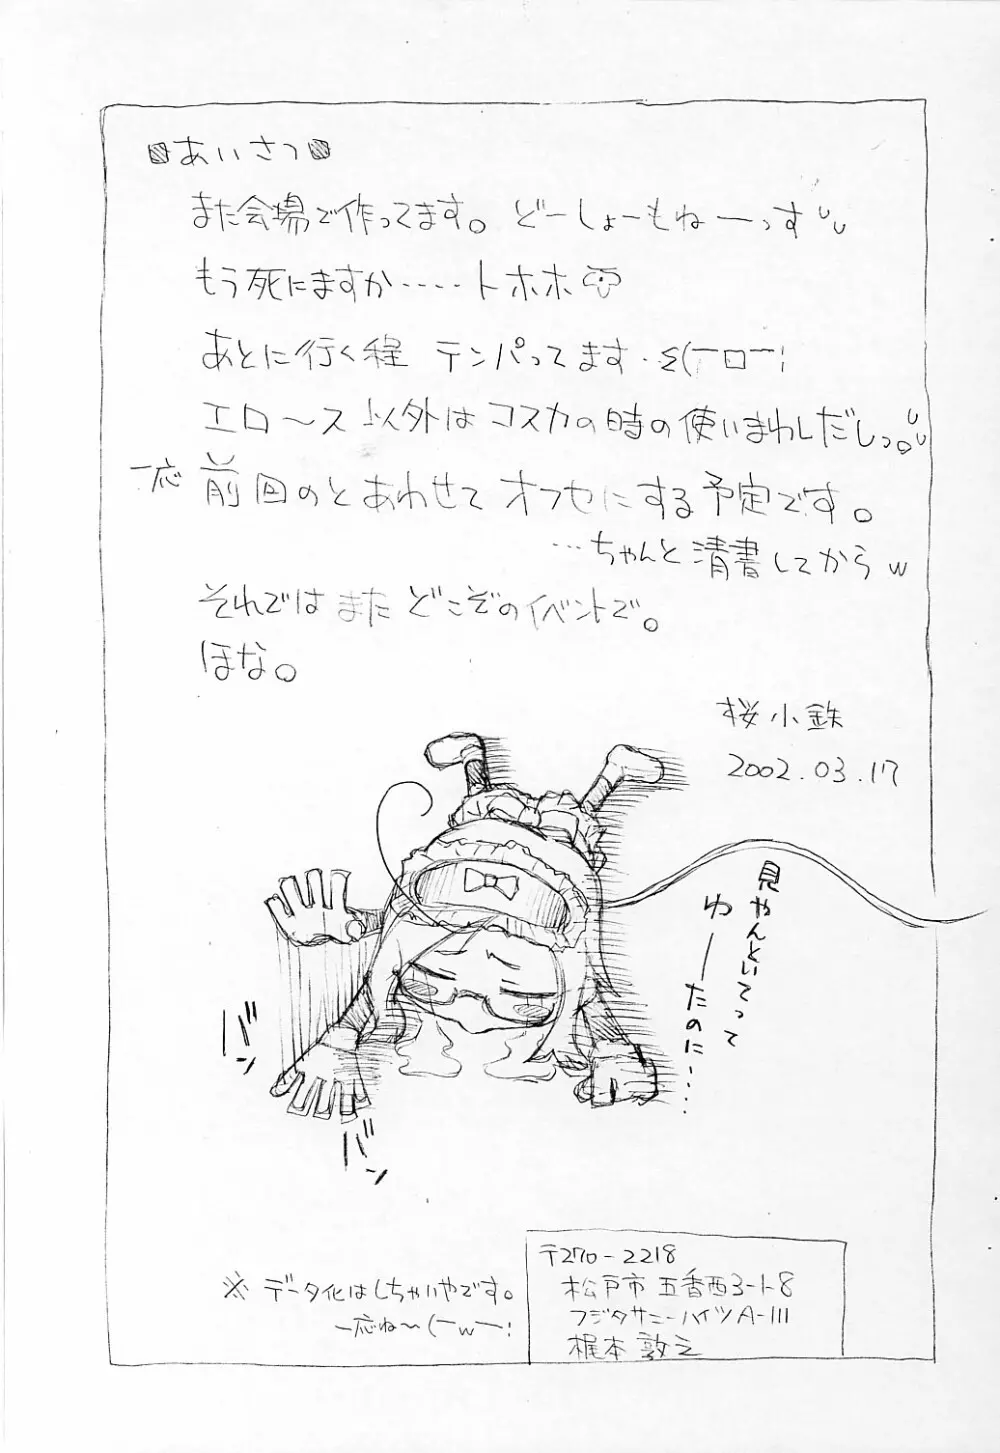 ■あいさつ■
また会場で作ってます。どーしょーもねーっす
もう死にますか‥‥‥トホホ
あとに行く程 テンパってます・Σ(￣ロ￣;
エロ〜ス以外はコスカの時の使いまわしだしっ。
一応 前回のとあわせてオフセにする予定です。
…ちゃんと清書してからw
それではまたどこぞのイベントで。
ほな。
桜小鉄
2002.03.17
見やんといてって
ゆーーたのに‥‥
バン
バン
※ データ化はしちゃいやです。
一応ね〜(￣w￣;
〒270-2218
松戸市五香西3-1-8
フジタサニーハイツA-111
梶本敦之